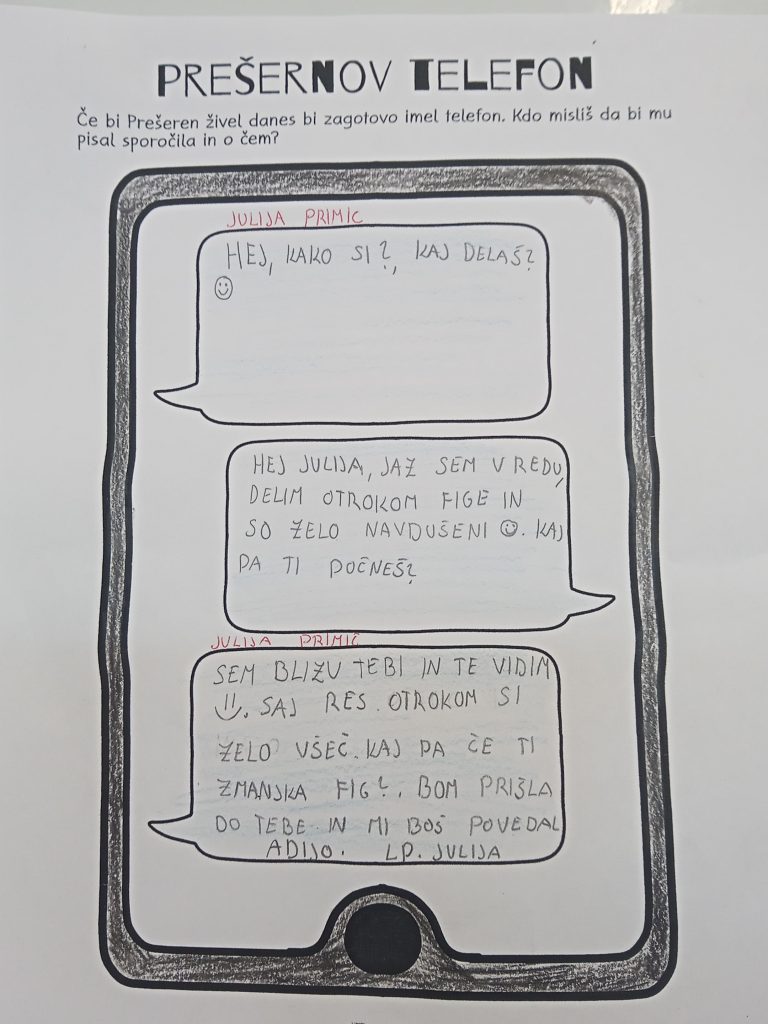 PREŠERNOV TELEFON
Če bi Prešeren živel danes bi zagotovo imel telefon. Kdo misliš da bi mu
pisal sporočila in o čem?
JULIJA PRIMIC
HEJ, KAKO SI?, KAJ DELAŠ?
☺
HEJ JULIJA, JAZ SEM V REDU,
DELIM OTROKOM FIGE IN
SO ŽELO NAVDUŠENI ☺. KAJ
PA TI POČNEŠ?
JULIJA PRIMIC
SEM BLIZU TEBI IN TE VIDIM
☺. SAJ RES. OTROKOM SI
ŽELO VŠEČ. KAJ PA ČE TI
ZMANJSKA FIG?. BOM PRIŠLA
DO TEBE IN MI BOŠ POVEDAL
ADIJO. LP. JULIJA